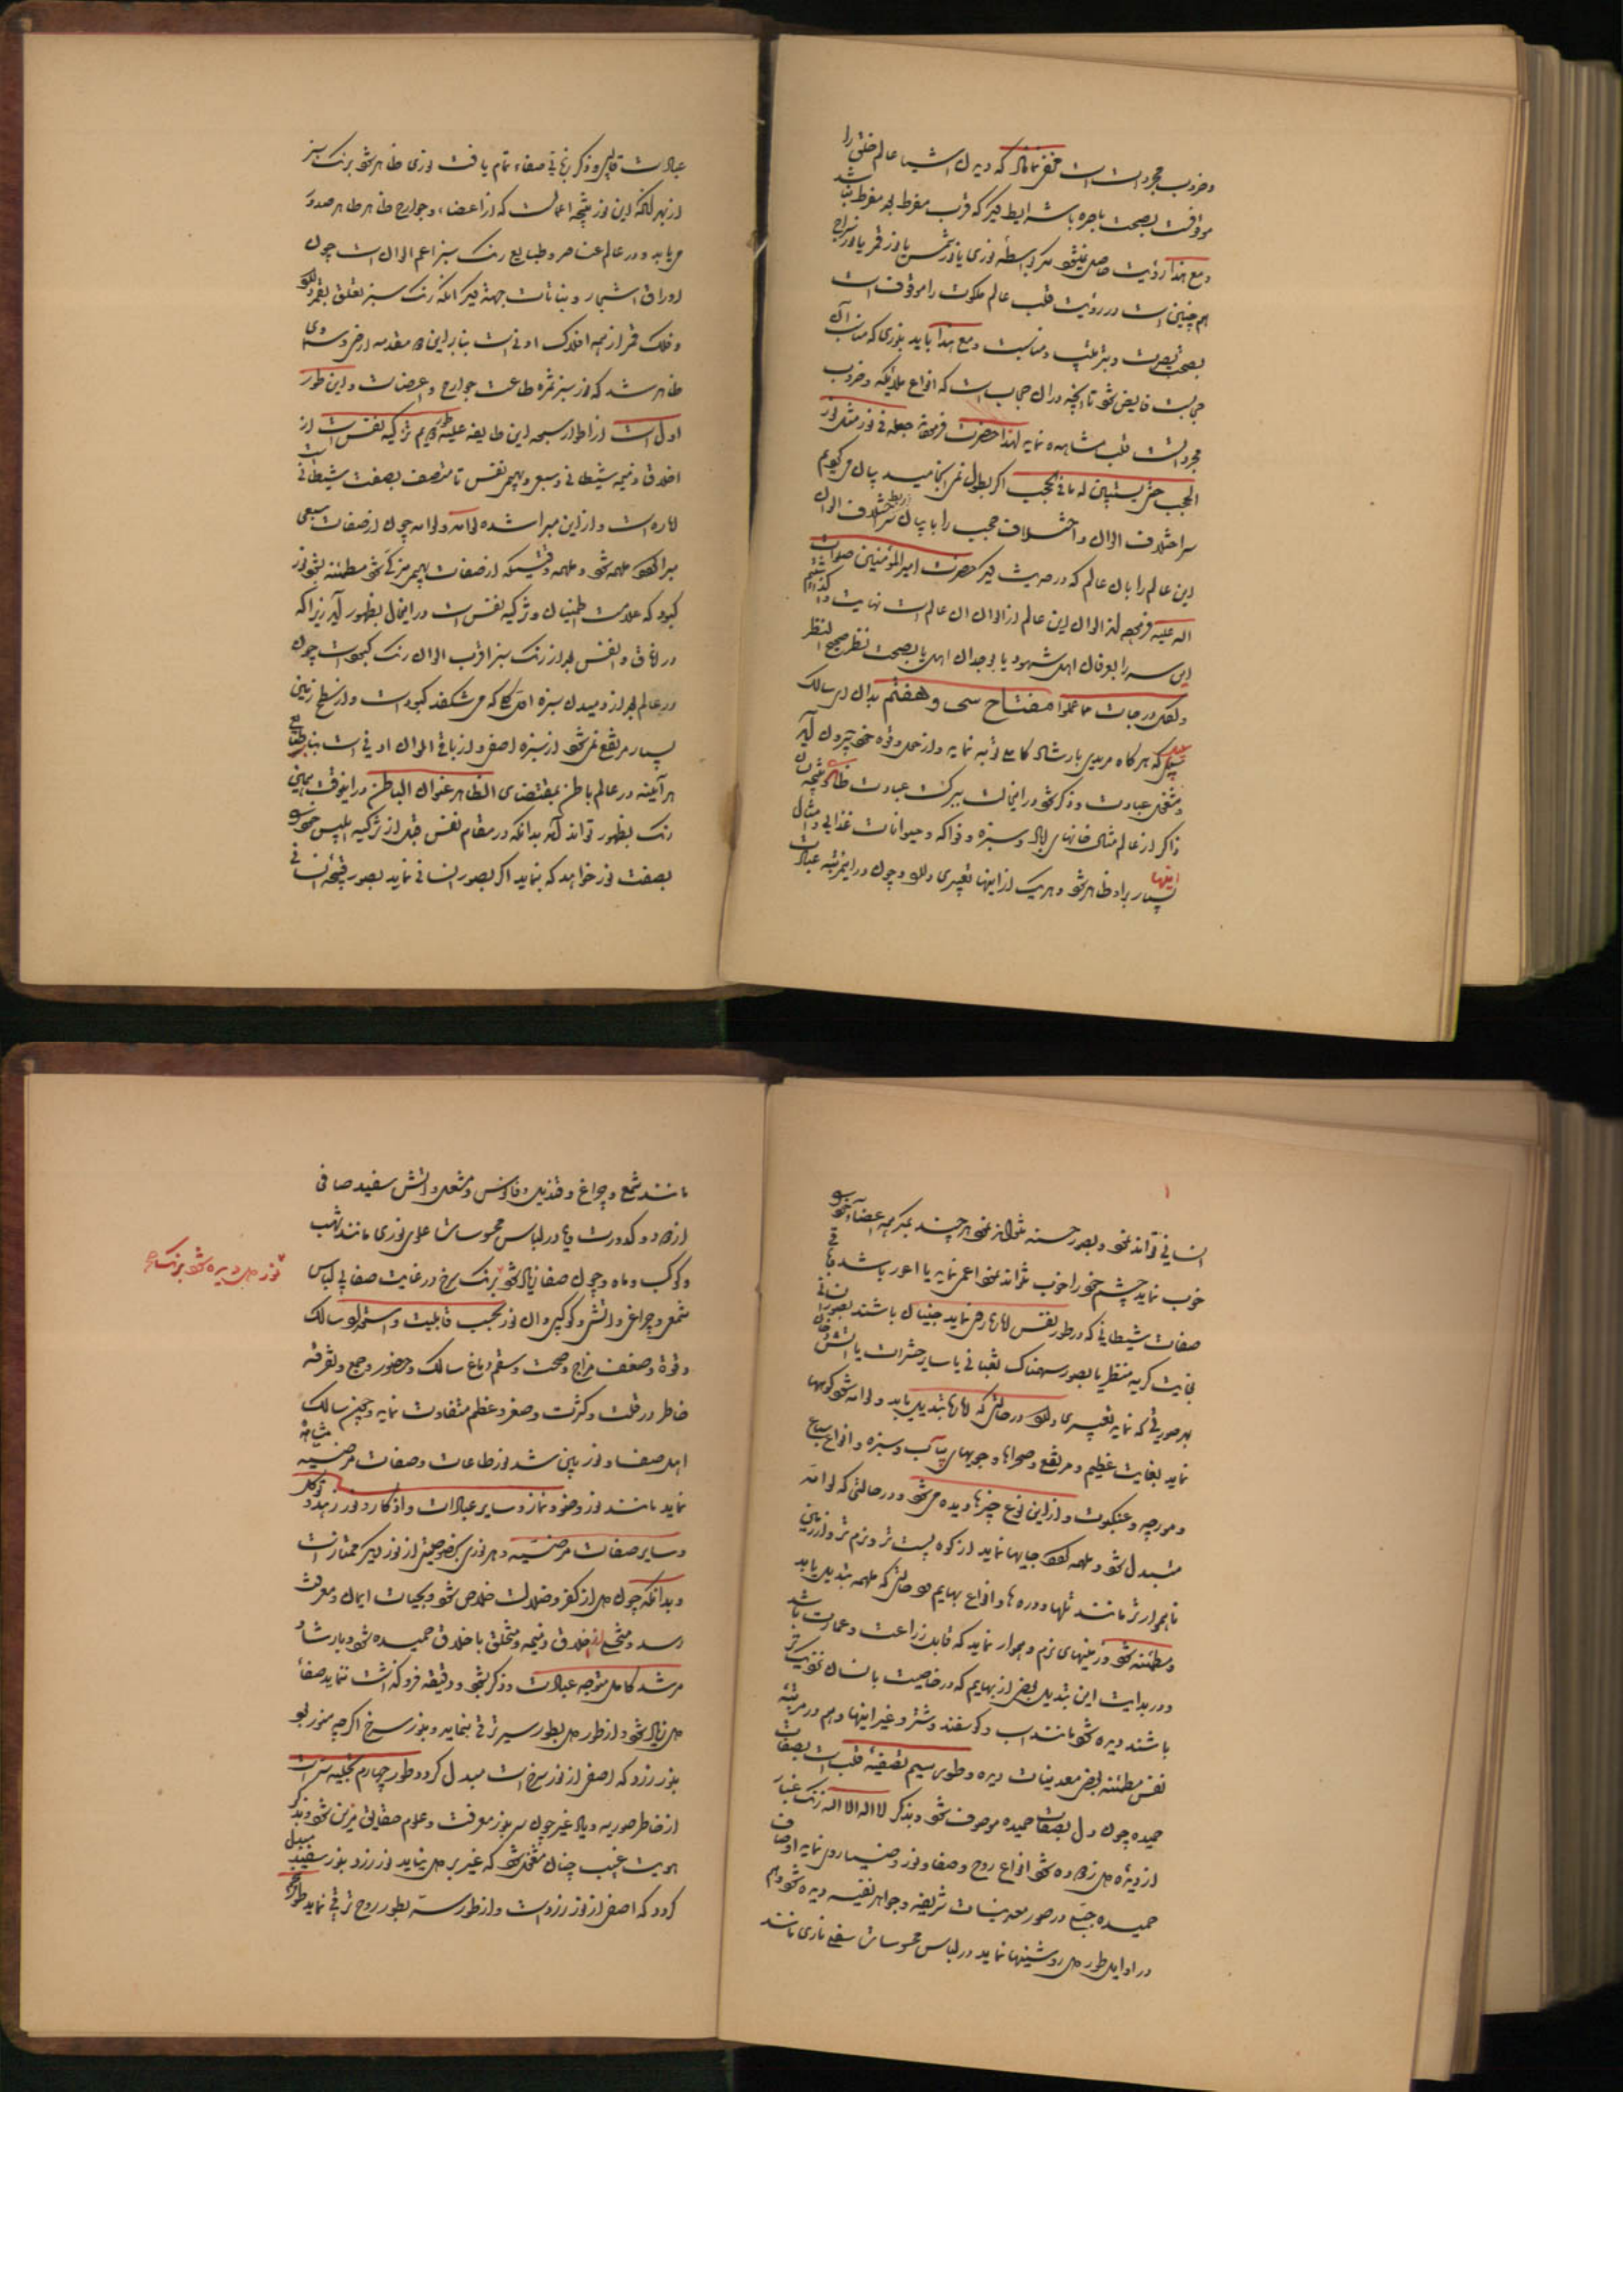 وضروب مجردات است مخفی نماناد که دیدن اشیا عالم خلق را
موقوفست بصحت باصره با شرایط دیگر که قرب مفرط بعد مفرط نباشد
ومع هذا رؤیت حاصل نمیشود مگر بواسطه نوری یا نور شمس یا نور قمر یا نور سراج
هم چنین است در رؤیت قلب عالم ملکوت را موقوف است
بصحت بصیرت و مناسبت ومع هذا باید بنوری که مناسب آن
حجابست فایض شود تا آنچه در آن حجاب است که انواع ملائکه وضروب
مجرداتست قلب مشاهده نماید لهذا حضرت فرموده جعله فی نور مثل نور
الحجب حتی یستبین له ما فی الحجب اگر بطول نمی انجامید بیان میکردیم
سر اختلاف الوان و اختلاف حجب را با بیان سر ربط اختلاف الوان
این عالم را بان عالم که در حدیث دیگر حضرت امیرالمؤمنین صلوات
الله علیه فرموده از الوان این عالم از الوان ان عالم است نهایت
این سر را بعرفان اهل شهود یا بوجدان اهل یا بصحت نظر صحیح النظر
ولکل درجات مما عملوا مفتاح سی وهفتم بدان ای سالک
سبیل که هر گاه مریدی بارشاد کاملی توبه نماید واز حول وقوه خود بیرون آید
ومشغول عبادت وذکر شود در اینحالت ببرکت عبادت
ذاکر از عالم مثال خانهای و سبزه و فواکه و حیوانات غذایی وامثال
اینها بسیار براو ظاهر شود وهریک از اینها تعبیری دارد وچون در اینمرتبه عبادت
عبادت قالبی وذکر زبانی صفاء تمام یافت نوری ظاهر شود برنک سبز
از بهر انکه این نور نتیجه اعمالست که از اعضاء وجوارح ظاهر ظاهر صدور
می یابد و در عالم عناصر وطبایع رنک سبز اعم الوان است چون
اوراق اشجار ونباتات جهة دیگر انکه رنک سبز تعلق بقمر دارد
وفلک قمر از همه افلاک ادنی است بنابر این دو مقدمه ارضی وسماوی
ظاهر شد که نور سبز ثمره طاعت جوارح وعرضیات واین طور
اول است از اطوار سبعه این طایفه علیه طور دویم تزکیه نفس است از
اخلاق ذمیمه شیطانی وسبعی وبهیمی نفس تا متصف بصفت شیطانی است
اماره است واز این مبرا شده لوامه ولوامه چون از صفات سبعی
مبرا کردد ملهمه شود وملهمه وقتیکه از صفات بهیمی مزکی شود مطمئنه شود نور
کبود که علامت اطمینان وتزکیه نفس است در اینحال بظهور آید زیرا که
در آفاق وانفس بعد از رنک سبز اقرب الوان رنک کبود است چون
در عالم بعد از دمیدن سبزه اول کلی که می شکفد کبود است واز سطح زمین
بسیار مرتفع نمی شود از سبزه اصفی واز باقی الوان ادنی است بنابر تطابق
هر آینه در عالم باطن بمقتضای الظاهر عنوان الباطن در اینوقت همین
رنک بظهور تواند آمد بدانکه در مقام نفس قبل از تزکیه ابلیس خود را
بصفت نور خواهد که بنماید اگر بصور انسانی نماید بصور قبیحه انسانی
انسانی تواند نمود وبصور حسنه نتواند نمود هر چند که همه اعضاء خود را
خوب نماید چشم خود را خوب نتواند نمود اعمی نماید یا اعور باشد باقی
صفات شیطانی که در طور نفس اماره رخ نماید جنیان باشند بصور انسانی
بغایت کریه منظر یا بصور سهمناک ثعبانی یا سایر حشرات یا آتش ودخان
بهر صورتی که نماید تعبیری دارد در حالتی که اماره تبدیل یابد ولوامه شود کوهها
نماید بغایت عظیم ومرتفع وصحراها وجویهای پر آب وسبزه وانواع سباع
ومورچه وعنکبوت واز این نوع چیزها دیده می شود ودر حالتی که لوامه
متبدل شود وملهمه کردد جایها نماید از کوه پست تر ونرم تر واز زمین
ناهموارتر مانند تلها ودره ها وانواع بهایم در حالتی که ملهمه تبدیل یابد
ومطمئنه شود زمینهای نرم وهموار نماید که قابل زراعت وعمارت باشد
ودر بدایت این تبدیل بعضی از بهایم که در خاصیت بانسان نزدیک تر
باشند دیده شود مانند اسب وکوسفند وشتر وغیر اینها وهم در مرتبه
نفس مطمئنه بعضی معدنیات دیده وطور سیم تصفیه قلب است بصفات
حمیده چون دل بصفات حمیده موصوف شود وبذکر لا اله الا الله زنک غبار
از دیده دل زدوده شود انواع روح وصفا ونور وضیا روی نماید اوصاف
حمیده جمیع در صور معدنیات شریفه وجواهر نفیسه دیده شود وهم
در اوایل طور دل روشنیها نماید در لباس محسوسات سفلی ناری مانند
مانند شمع وچراغ وقندیل وفانوس ومشعل وآتش سفید صافی
از دود وکدورت ویا در لباس محسوسات علوی نوری مانند شهب
وکوکب وماه وچون صفا زیاد شود برنک سرخ در غایت صفا بی لباس
نور دل دیده شود برنک سرخ
شمعی وچراغی وآتشی وکوکبی وان نور بحسب قابلیت واستعداد سالک
وقوة وضعف مزاج وصحت وسقم دماغ سالک وحضور وجمع وتفرقه
خاطر در قلت وکثرت وصغر وعظم متفاوت نماید وچنین سالک
اهل صفا ونور یقین شد نور طاعات وصفات مرضیه مشاهده
نماید مانند نور وضو ونماز وسایر عبادات واذکار ونور زهد وتوکل
وسایر صفات مرضیه وهر نوری بخصوصیتی از نور دیگر ممتاز است
وبدانکه چون دل از کفر وضلالت خلاص شود وبحیات ایمان ومعرفت
رسد از اخلاق ذمیمه ومتخلق باخلاق حمیده شود وبارشاد
مرشد کامل متوجه عبادت وذکر شود ودقیقه فروکذاشت ننماید صفاء
دل زیاد شود واز طور دل بطور سر ترقی بنماید ونور سرخ اگر چه منور بود
بنور زرد که اصفی از نور سرخ است مبدل کردد وطور چهارم تجلیه سر است
از خاطر صوریه ویاد غیر چون سر بنور معرفت وعلوم حقایق مزین شود وبذکر
هویت غیب چنان مشغول شود که غیر بر دل نیاید نور زرد بنور سفید مبدل
کردد که اصفی از نور زرد است واز طور سر بطور روح ترقی نماید طور پنجم